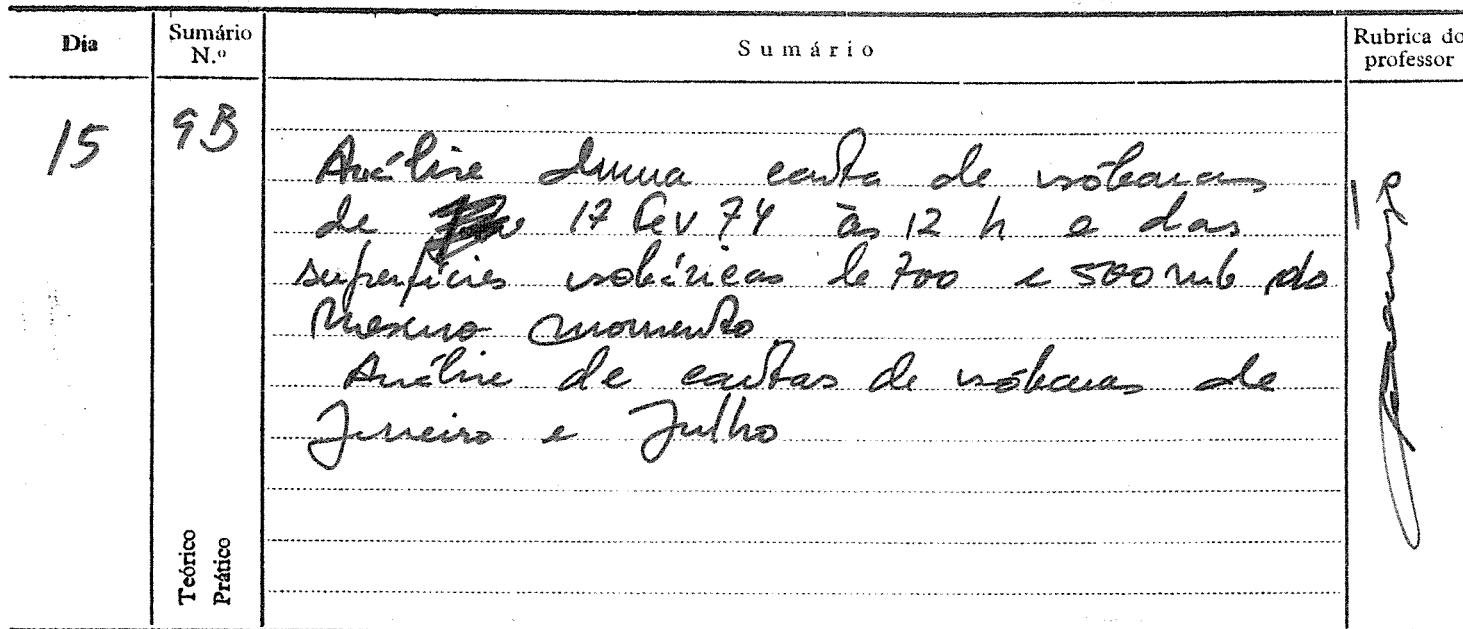 Dia
Sumário N.º
Sumário
Rubrica do professor
15
9B
Análise duma carta de isóbaras
de 17 Fev 74 às 12 h e das
superfícies isobáricas de 700 e 500 mb do
mesmo momento
Análise de cartas de isóbaras de
Janeiro e Julho
Teórico
Prático